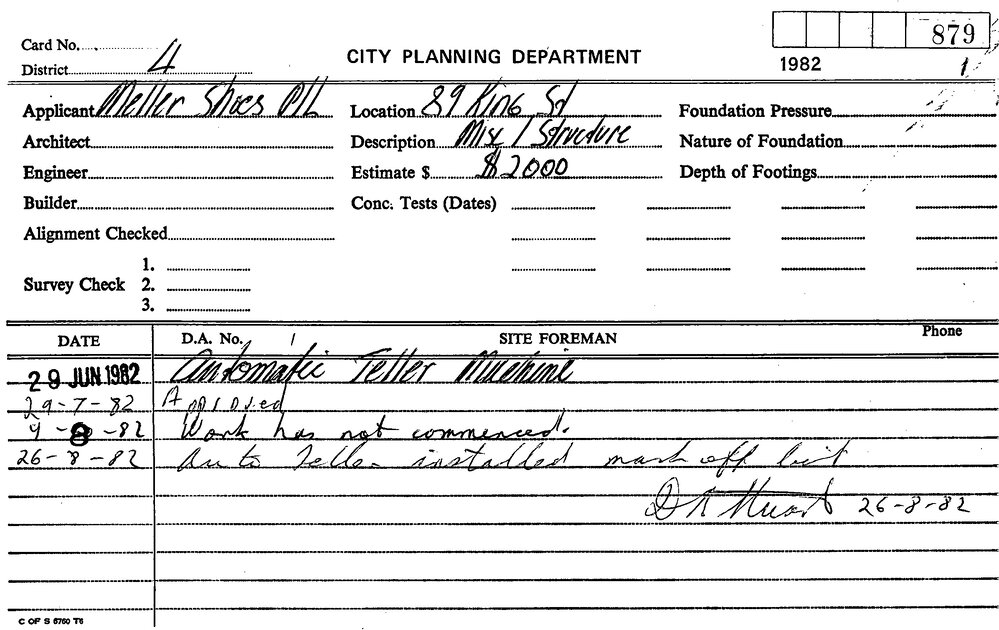 879
Card No.
CITY PLANNING DEPARTMENT
1982
District 4
1
Applicant Meller Shoes P/L Location 89 King St Foundation Pressure
Architect Description Misc / Structure Nature of Foundation
Engineer Estimate $ $2000 Depth of Footings
Builder Conc. Tests (Dates)
Alignment Checked
1.
Survey Check 2.
3.
DATE D.A. No. SITE FOREMAN Phone
29 JUN 1982 Automatic Teller Machine
29-7-82 Approved
9-8-82 Work has not commenced.
26-8-82 Auto Teller installed mark off list
26-8-82
C OF S 6760 T6